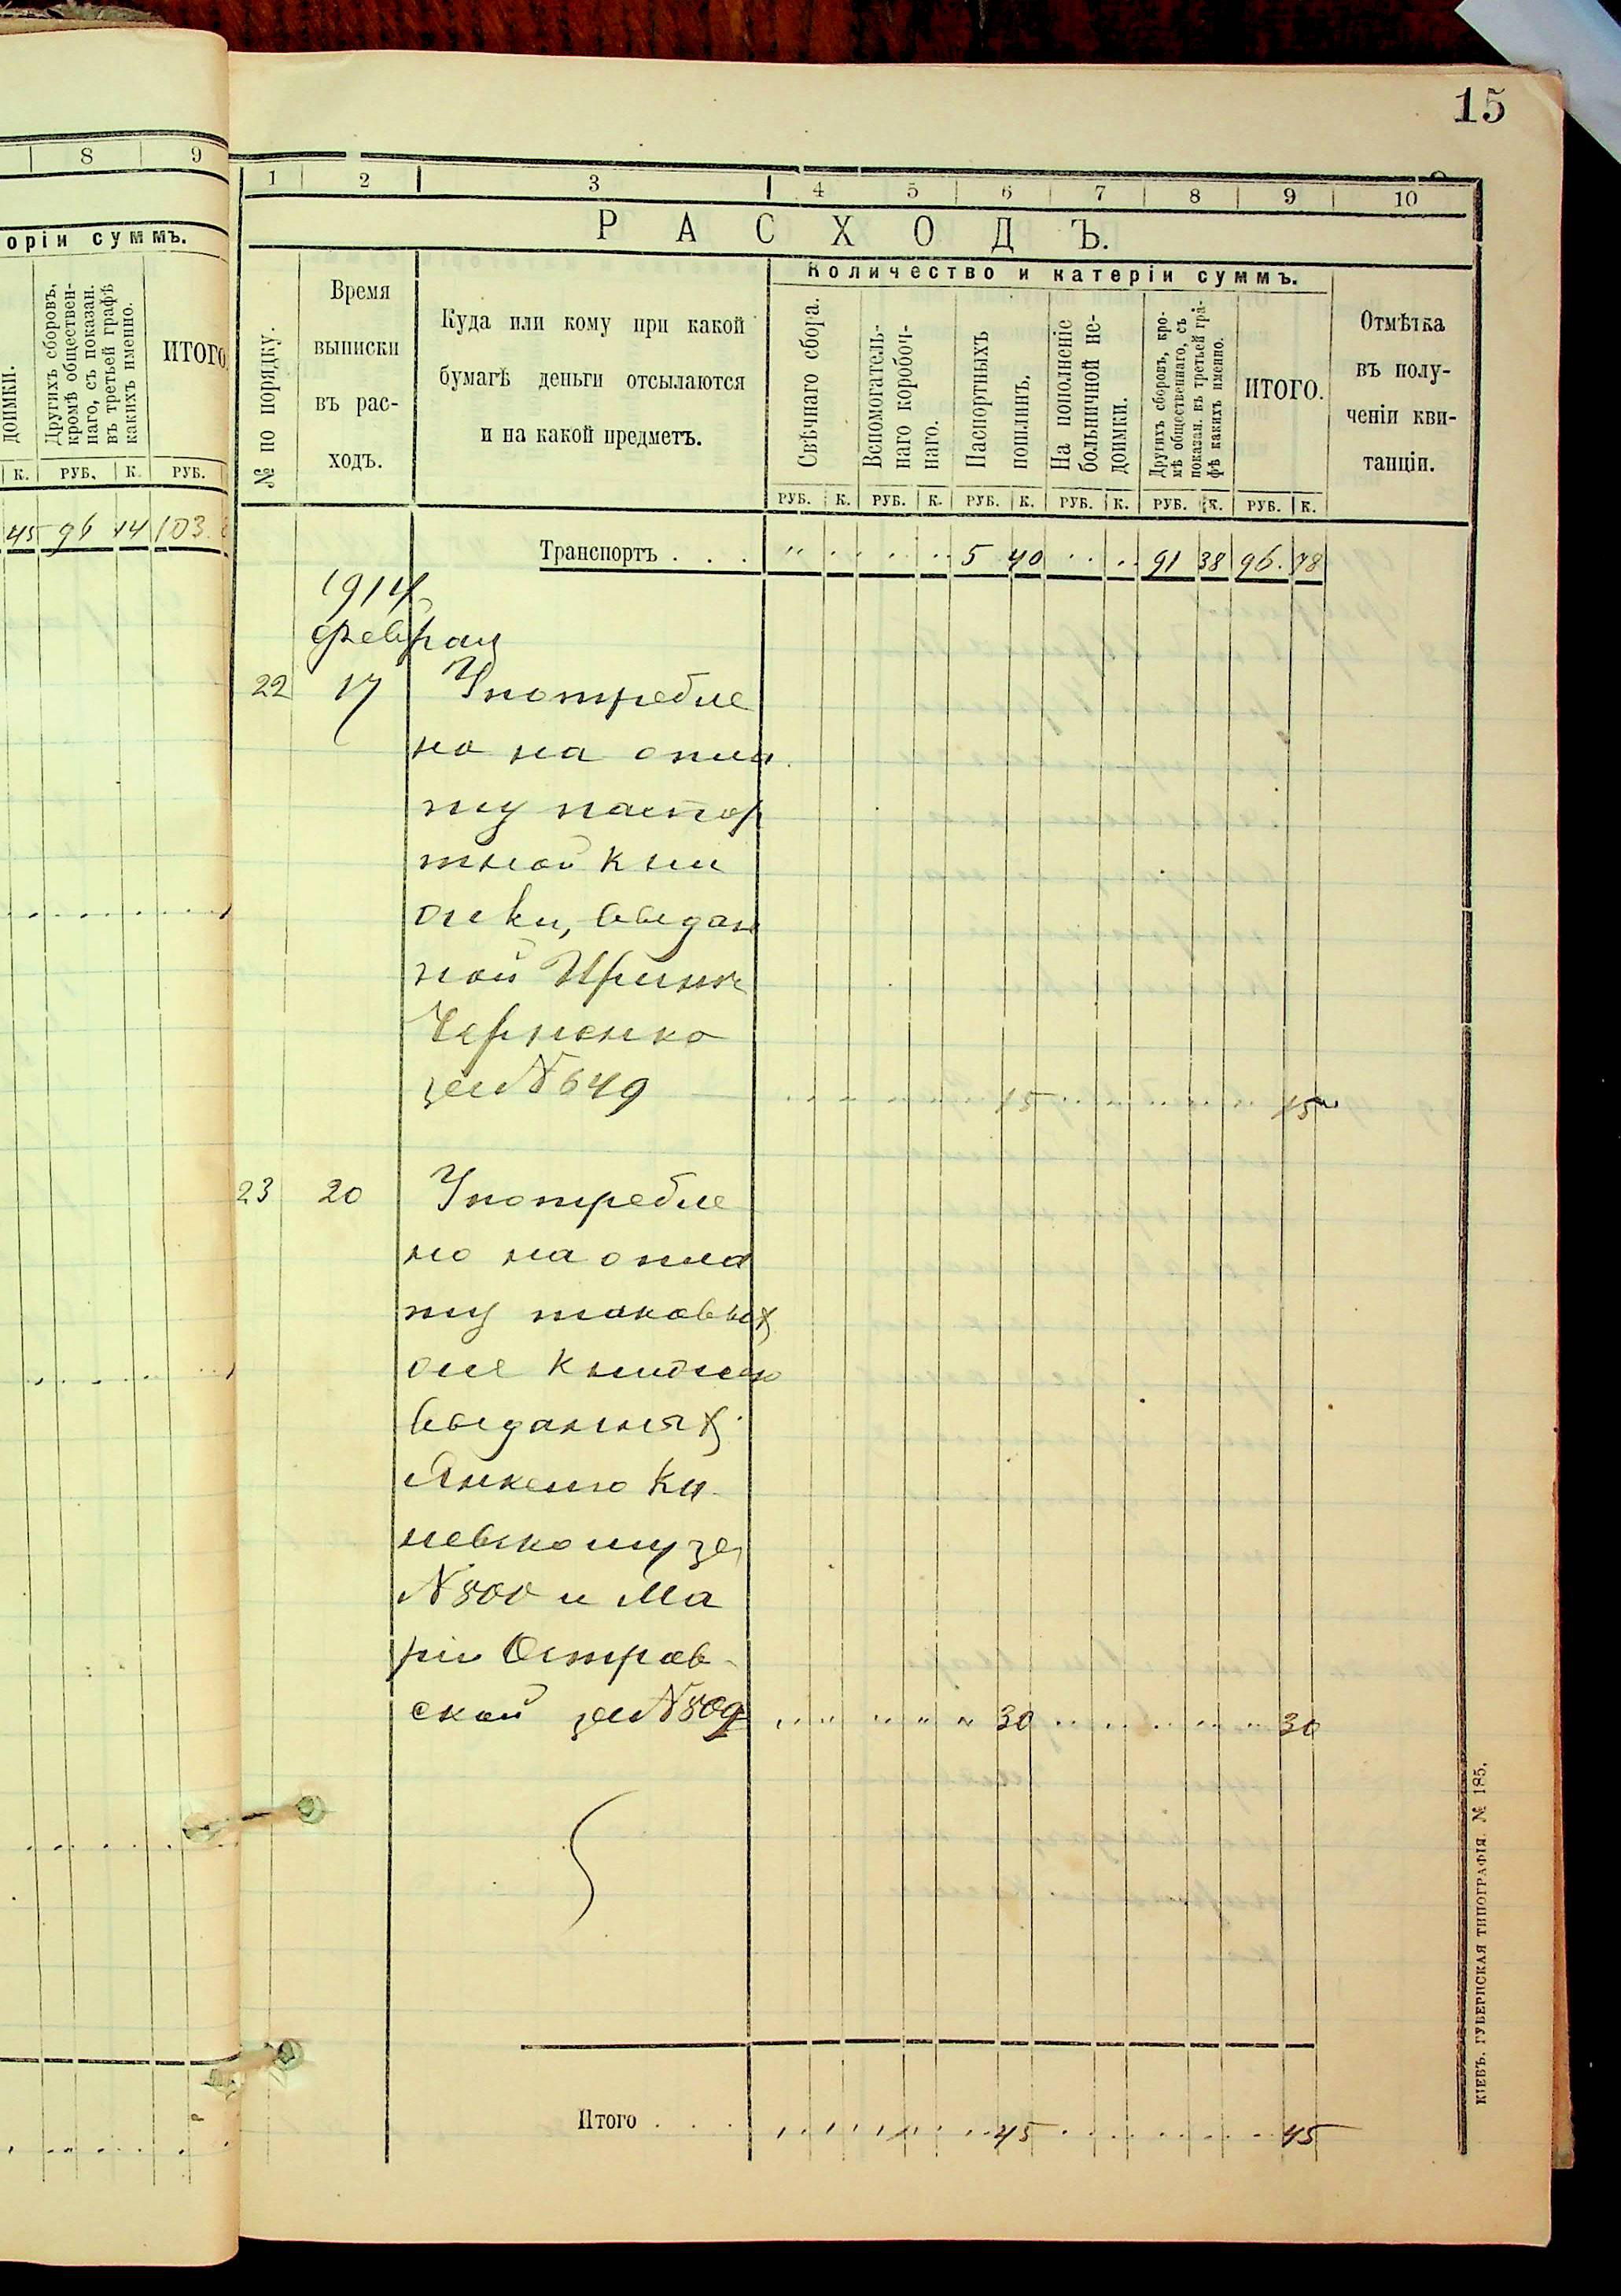 15
8 9
оріи суммъ.
доимки.
Другихъ сборовъ,
кромѣ обществен-
наго, съ показан.
въ третьей графѣ
какихъ именно.
ИТОГО
К. РУБ. К. РУБ.
45 96 14 103
1 2 3 4 5 6 7 8 9 10
РАСХОДЪ.
Количество и катеріи суммъ.
№ по порядку.
Время
выписки
въ рас-
ходъ.
Куда или кому при какой
бумагѣ деньги отсылаются
и на какой предметъ.
Свѣчнаго сбора.
Вспомогатель-
наго коробоч-
наго.
Паспортныхъ
пошлинъ.
На пополненіе
больничной не-
доимки.
Другихъ сборовъ, кро-
мѣ общественнаго, съ
показан. въ третьей гра-
фѣ какихъ именно.
ИТОГО.
Отмѣтка
въ полу-
ченіи кви-
танціи.
РУБ. К. РУБ. К. РУБ. К. РУБ. К. РУБ. К. РУБ. К.
Транспортъ . . . 5 40 91 38 96. 78
1914
Февраля
22 17 Употребле
но на опла
ту паспор
тной кни
жки, выдан
ной Ирине
Черненко
за № 649 15 15
23 20 Употребле
но на опла
ту таковых
же книжек
выданных
Янкелю Ка
невскому за
№ 800 и Ма
ріи Остров
ской за № 809 30 30
Итого . . . 45 45
КІЕВЪ. ГУБЕРНСКАЯ ТИПОГРАФІЯ. № 185.